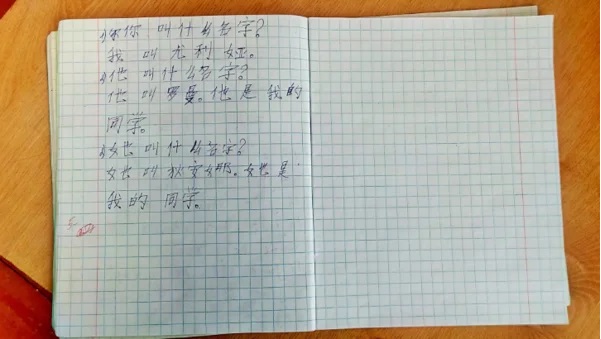 你 叫 什么名字?
我 叫 尤利娅。
他 叫什么名字?
他 叫 罗曼。他 是 我的
同学。
她 叫 什么名字?
她 叫 狄安娜。她 是
我的 同学。